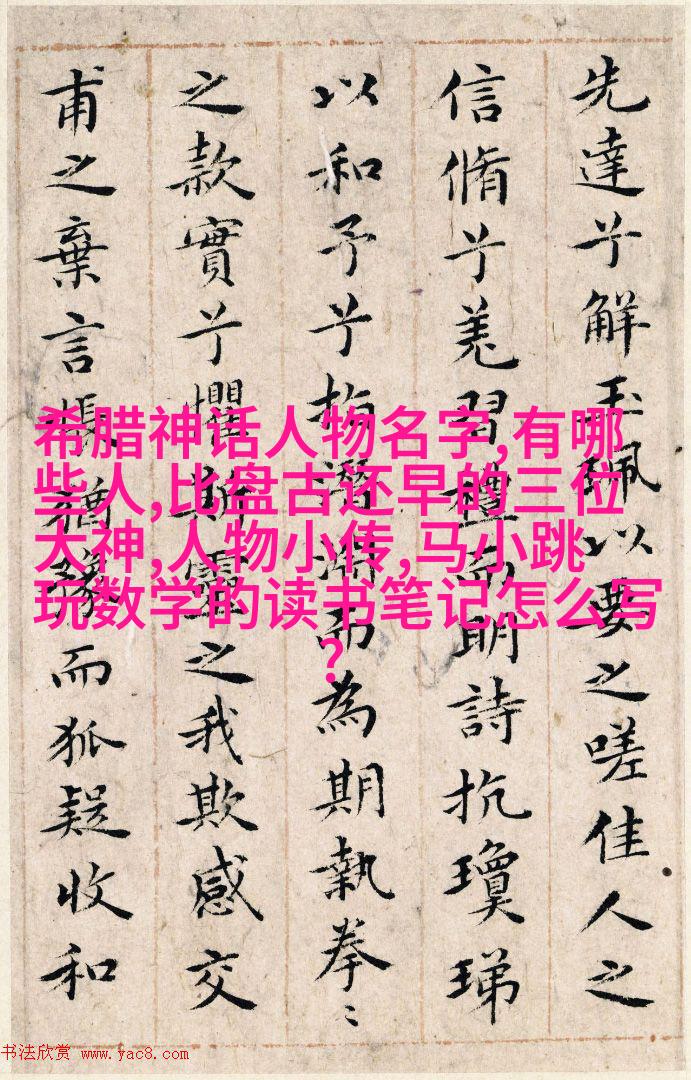 先達兮解玉珮以要之嗟佳人之
信脩兮羌習禮而明詩抗瓊珶
以和予兮指潛淵而為期執拳〻
之款實兮懼斯靈之我欺感交
甫之棄言悵猶豫而狐疑收和
希腊神话人物名字,有哪
些人,比盘古还早的三位
大神,人物小传,马小跳
玩数学的读书笔记怎么写
?
书法欣赏 www.yac8.com